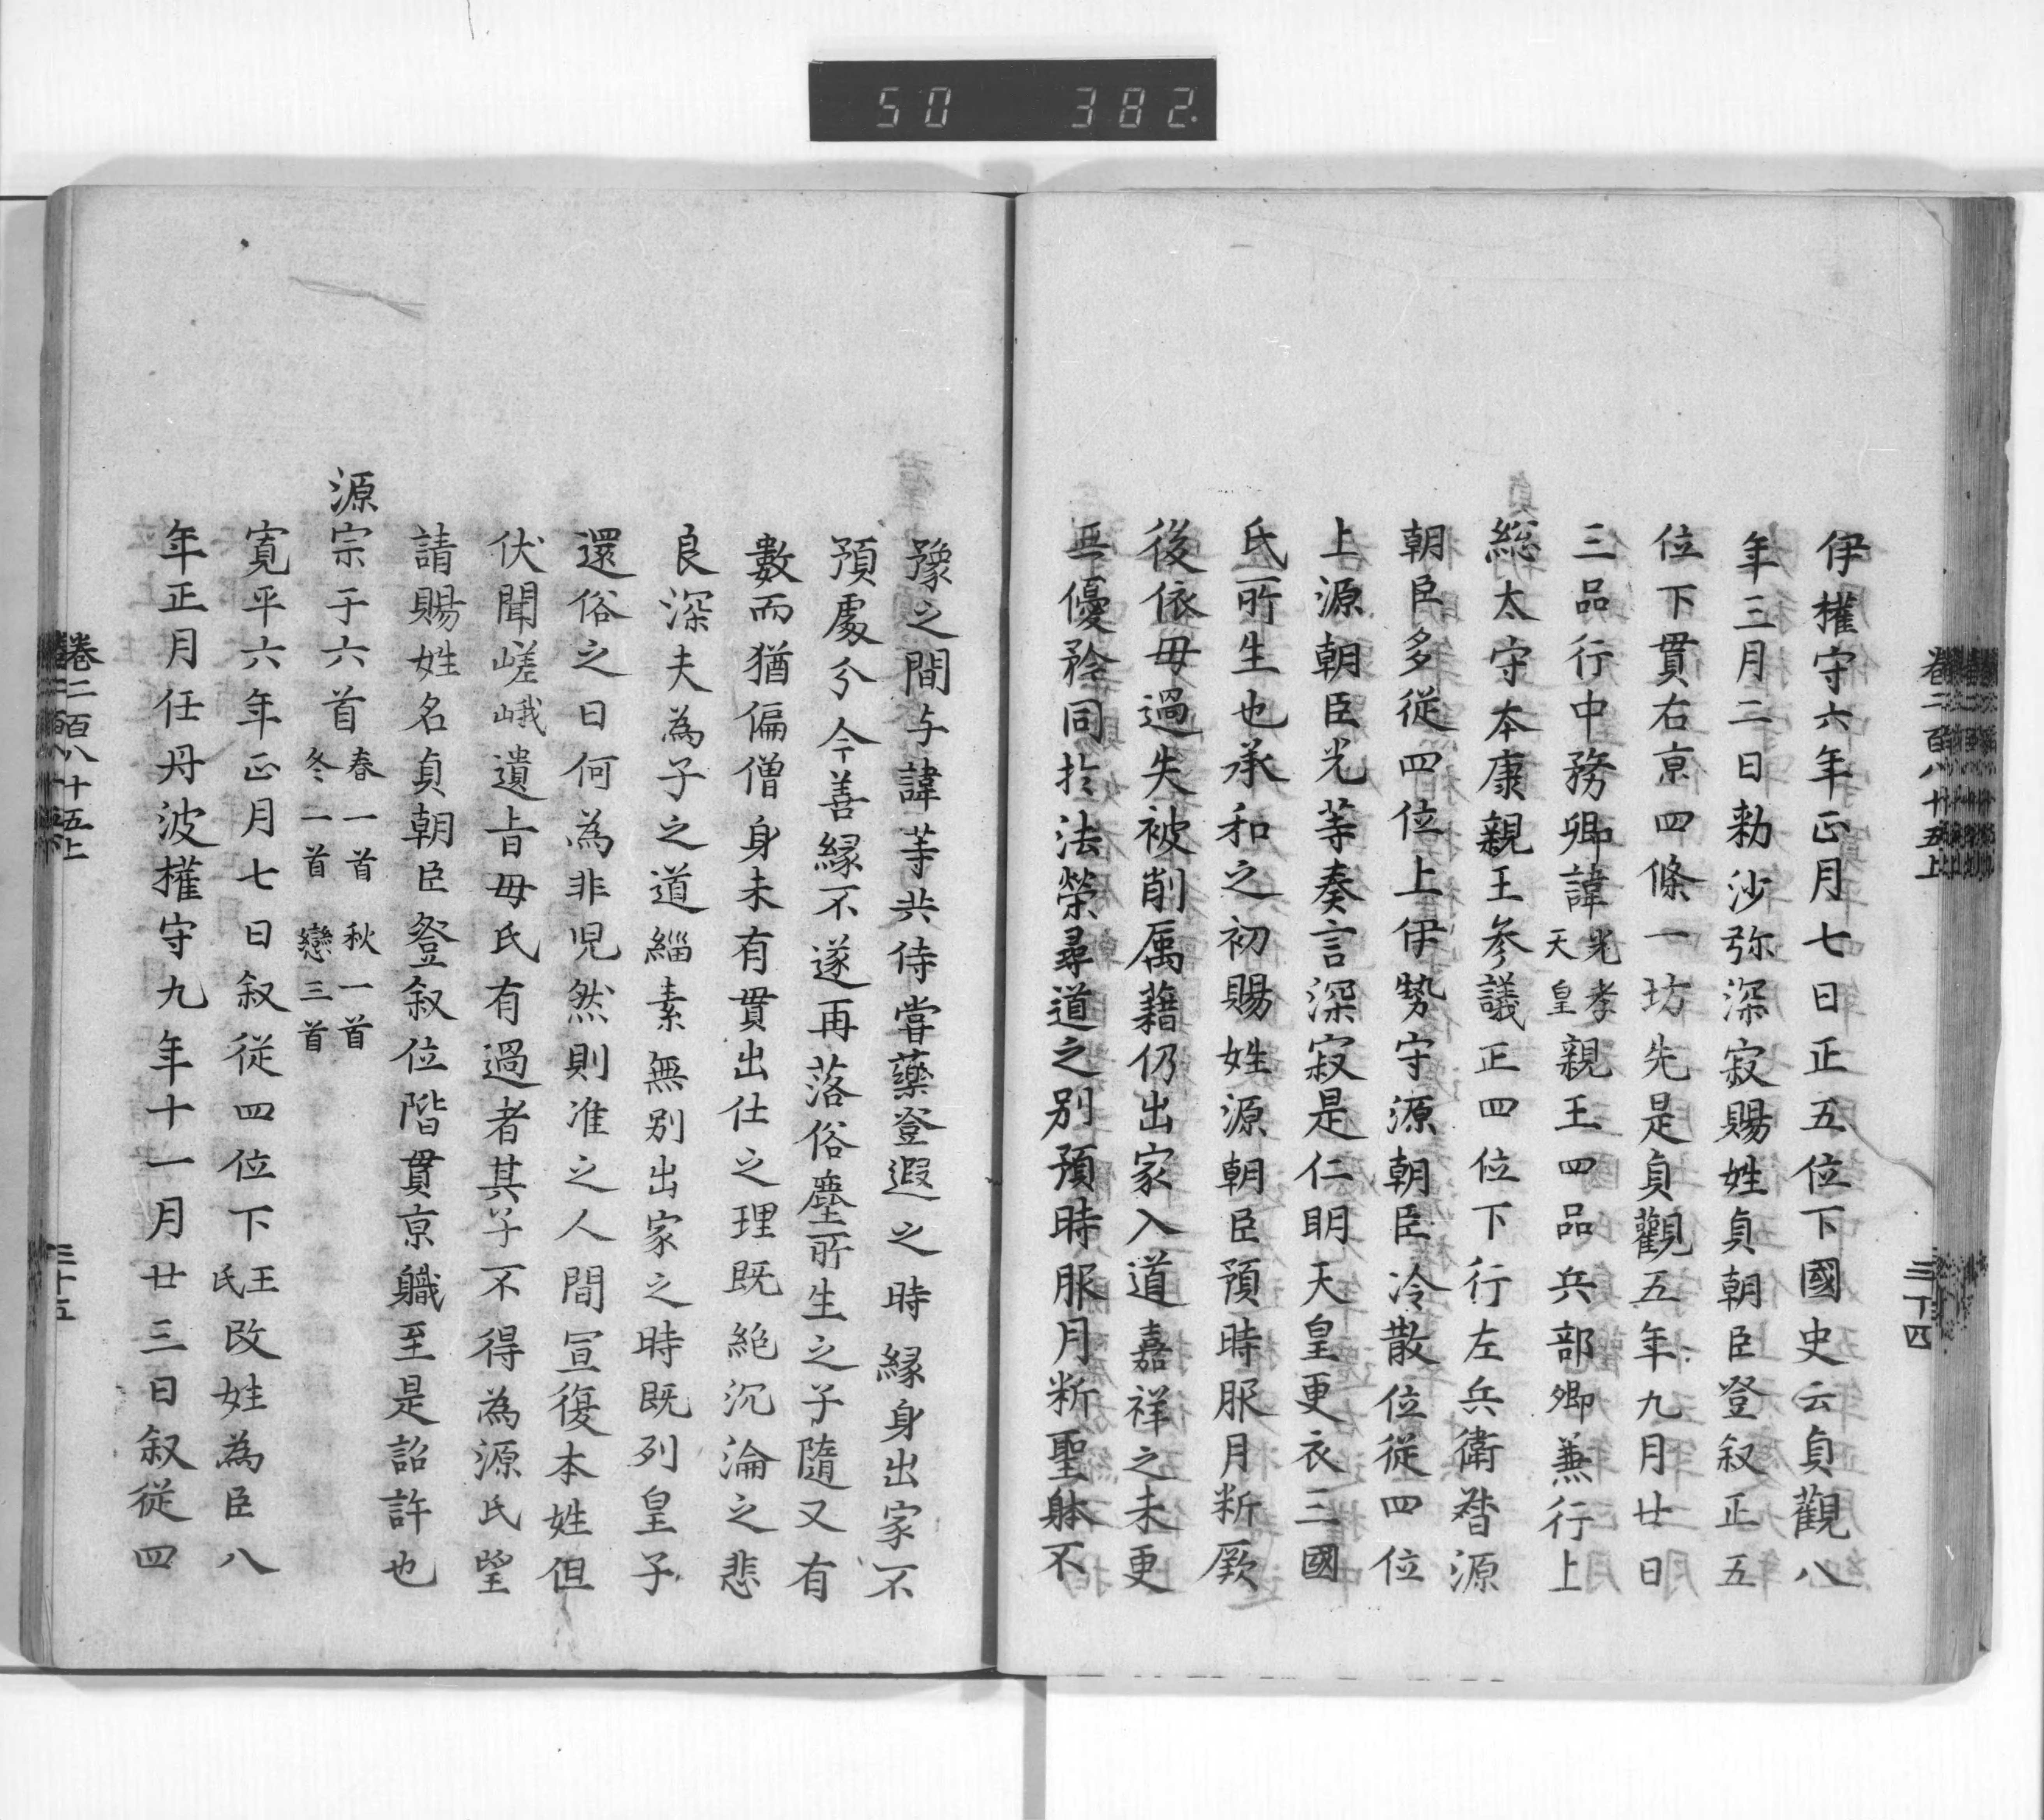 50 382.
卷二百八十五上
三十四
伊權守六年正月七日正五位下國史云貞觀八
年三月二日勅沙弥深寂賜姓貞朝臣登叙正五
位下貫右京四條一坊先是貞觀五年九月廿日
三品行中務卿諱光孝天皇親王四品兵部卿兼行上
総太守本康親王参議正四位下行左兵衛督源
朝臣多従四位上伊勢守源朝臣冷散位従四位
上源朝臣光等奏言深寂是仁明天皇更衣三國
氏所生也承和之初賜姓源朝臣預時服月析厥
後依毋過失被削属藉仍出家入道嘉祥之末更
垂優矜同扵法榮尋道之别預時服月析聖躰不
豫之間与諱等共侍嘗藥登遐之時縁身出家不
預處分今善縁不遂再落俗塵所生之子隨又有
數而猶偏僧身未有貫出仕之理既絶沉淪之悲
良深夫為子之道緇素無别出家之時既列皇子
還俗之日何為非兒然則准之人間宣復本姓但
伏聞嵯峨遺旨毋氏有過者其子不得為源氏望
請賜姓名貞朝臣登叙位階貫京軄至是詔許也
源宗于六首春一首 秋一首
冬一首 戀三首
寛平六年正月七日叙従四位下王氏改姓為臣八
年正月任丹波權守九年十一月廿三日叙従四
卷二百八十五上
三十五